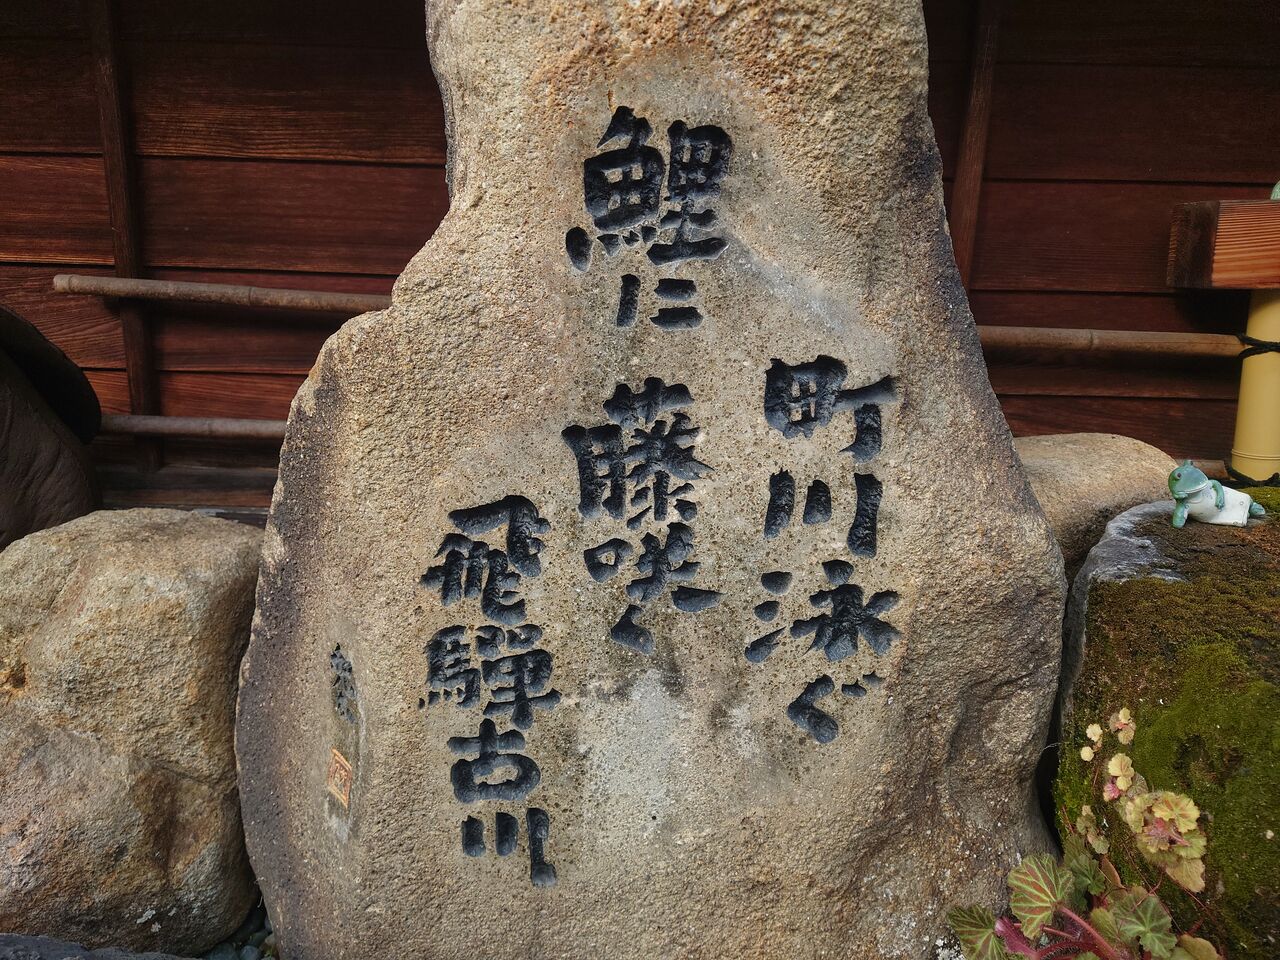 町川泳ぐ
鯉に藤咲く
飛騨古川